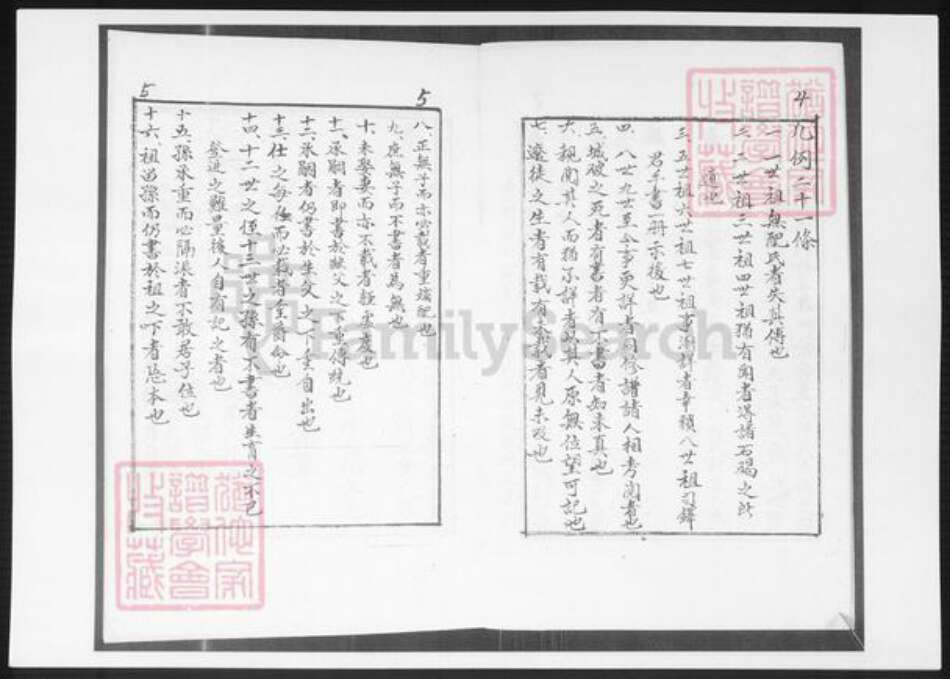 4
凡例二十一條
一、一世祖無配氏者失其傳也
二、二世祖三世祖四世祖猶有聞者得諸石碣之所
遺也
三、五世祖六世祖七世祖事漸詳者幸賴八世祖司鐸
君手書一冊示後也
四、八世九世至今事更詳者同修譜諸人相考閱者也
五、城破之死者有書者有不書者知未真也
六、親聞其人而猶不詳者以其人原無位望可記也
七、遷徙之生者有載有未載者見未及也
5
八、正無子而亦必載者重嫡配也
九、庶無子而不書者為無也
十、未娶妻而亦不載者
十一、承嗣者即書於嗣父之下重傳統也
十二、承嗣者仍書於生父之下重自出也
十三、仕之每任而必載者重君命也
十四、十二世之侄十三世之孫有不書者生育之不已
登進之難量後人自有記之者也
十五、孫承重而必隔派者不敢居子位也
5
十六、祖留孫而仍書於祖之下者念本也
FamilySearch